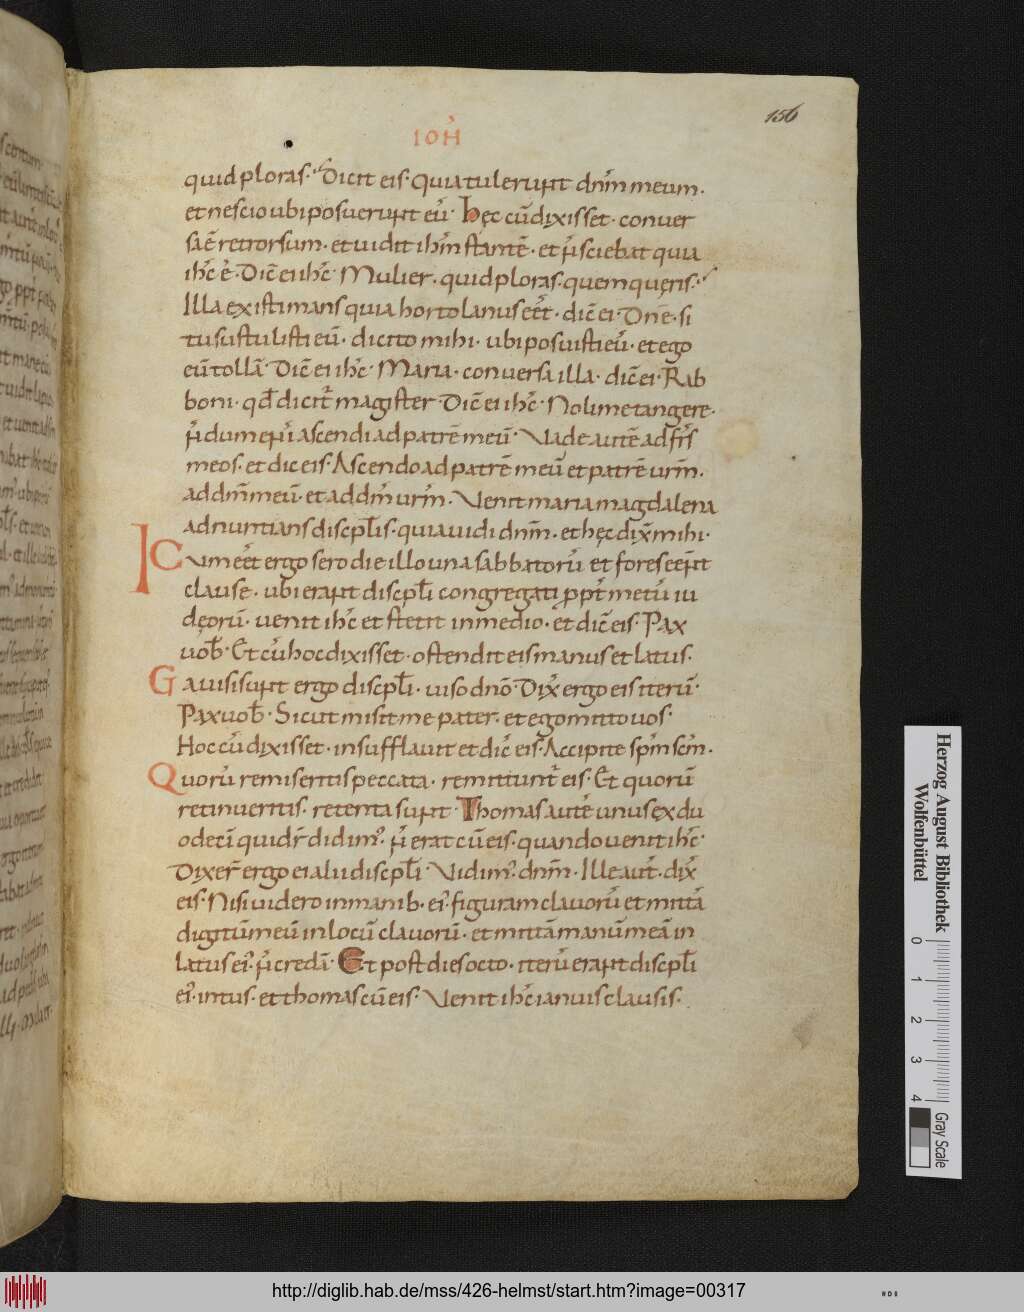 156
IOH̄
quid ploras· Dicit eis· Quia tulerunt dn̄m meum·
et nescio ubi posuerunt eū· hęc cū dixisset· conuer
sa ē retrorsum· et uidit ih̄m stantē· et n̄ sciebat quia
ih̄c ē· Dic̄ ei ih̄c· Mulier· quid ploras· quem queris·
Illa existimans quia hortolanus eēt· dic̄ ei· Dn̄e· si
tu sustulisti eū· dicito mihi· ubi posuisti eū· et ego
eū tollā· Dic̄ ei ih̄c· Maria· conuersa illa· dic̄ ei· Rab
boni· qd̄ dicit̄ magister· Dic̄ ei ih̄c· Noli me tangere·
n̄ dum enī ascendi ad patrē meū· Vade autē ad fr̄s
meos· et dic eis· Ascendo ad patrē meū et patrē urm̄·
ad dm̄ meū· et ad dm̄ urm̄· Venit maria magdalena
adnuntians discpl̄is· quia uidi dnm̄· et hęc dix̄ mihi·
I Cum eēt ergo sero die illo una sabbatorū et fores eēnt
clause· ubi erant discpl̄i congregati ppt̄ metū iu
deorū· uenit ih̄c et stetit in medio· et dic̄ eis· Pax
uob̄· Et cū hoc dixisset· ostendit eis manus et latus·
Gauisi sunt ergo discpl̄i· uiso dnō· Dix̄ ergo eis iterū·
Pax uob̄· Sicut misit me pater· et ego mitto uos·
Hoc cū dixisset· insufflauit et dic̄ eis· Accipite spm̄ scm̄·
Quorū remiseritis peccata· remittunt̄ eis· Et quorū
retinueritis· retenta sunt· Thomas autē unus ex du
odecī qui dr̄ didim᾿· n̄ erat cū eis· quando uenit ih̄c·
Dixer̄ ergo ei alii discpl̄i· Vidim᾿ dnm̄· Ille aut̄ dix̄
eis· Nisi uidero in manib· ei᾿ figuram clauorū et mittā
digitū meū in locū clauorū· et mittā manū meā in
latus ei᾿· n̄ credā· Et post dies octo· iterū erant discpl̄i
ei᾿ intus· et thomas cū eis· Venit ih̄c ianuis clausis·
Herzog August Bibliothek
Wolfenbüttel
0 1 2 3 4
Gray Scale
http://diglib.hab.de/mss/426-helmst/start.htm?image=00317